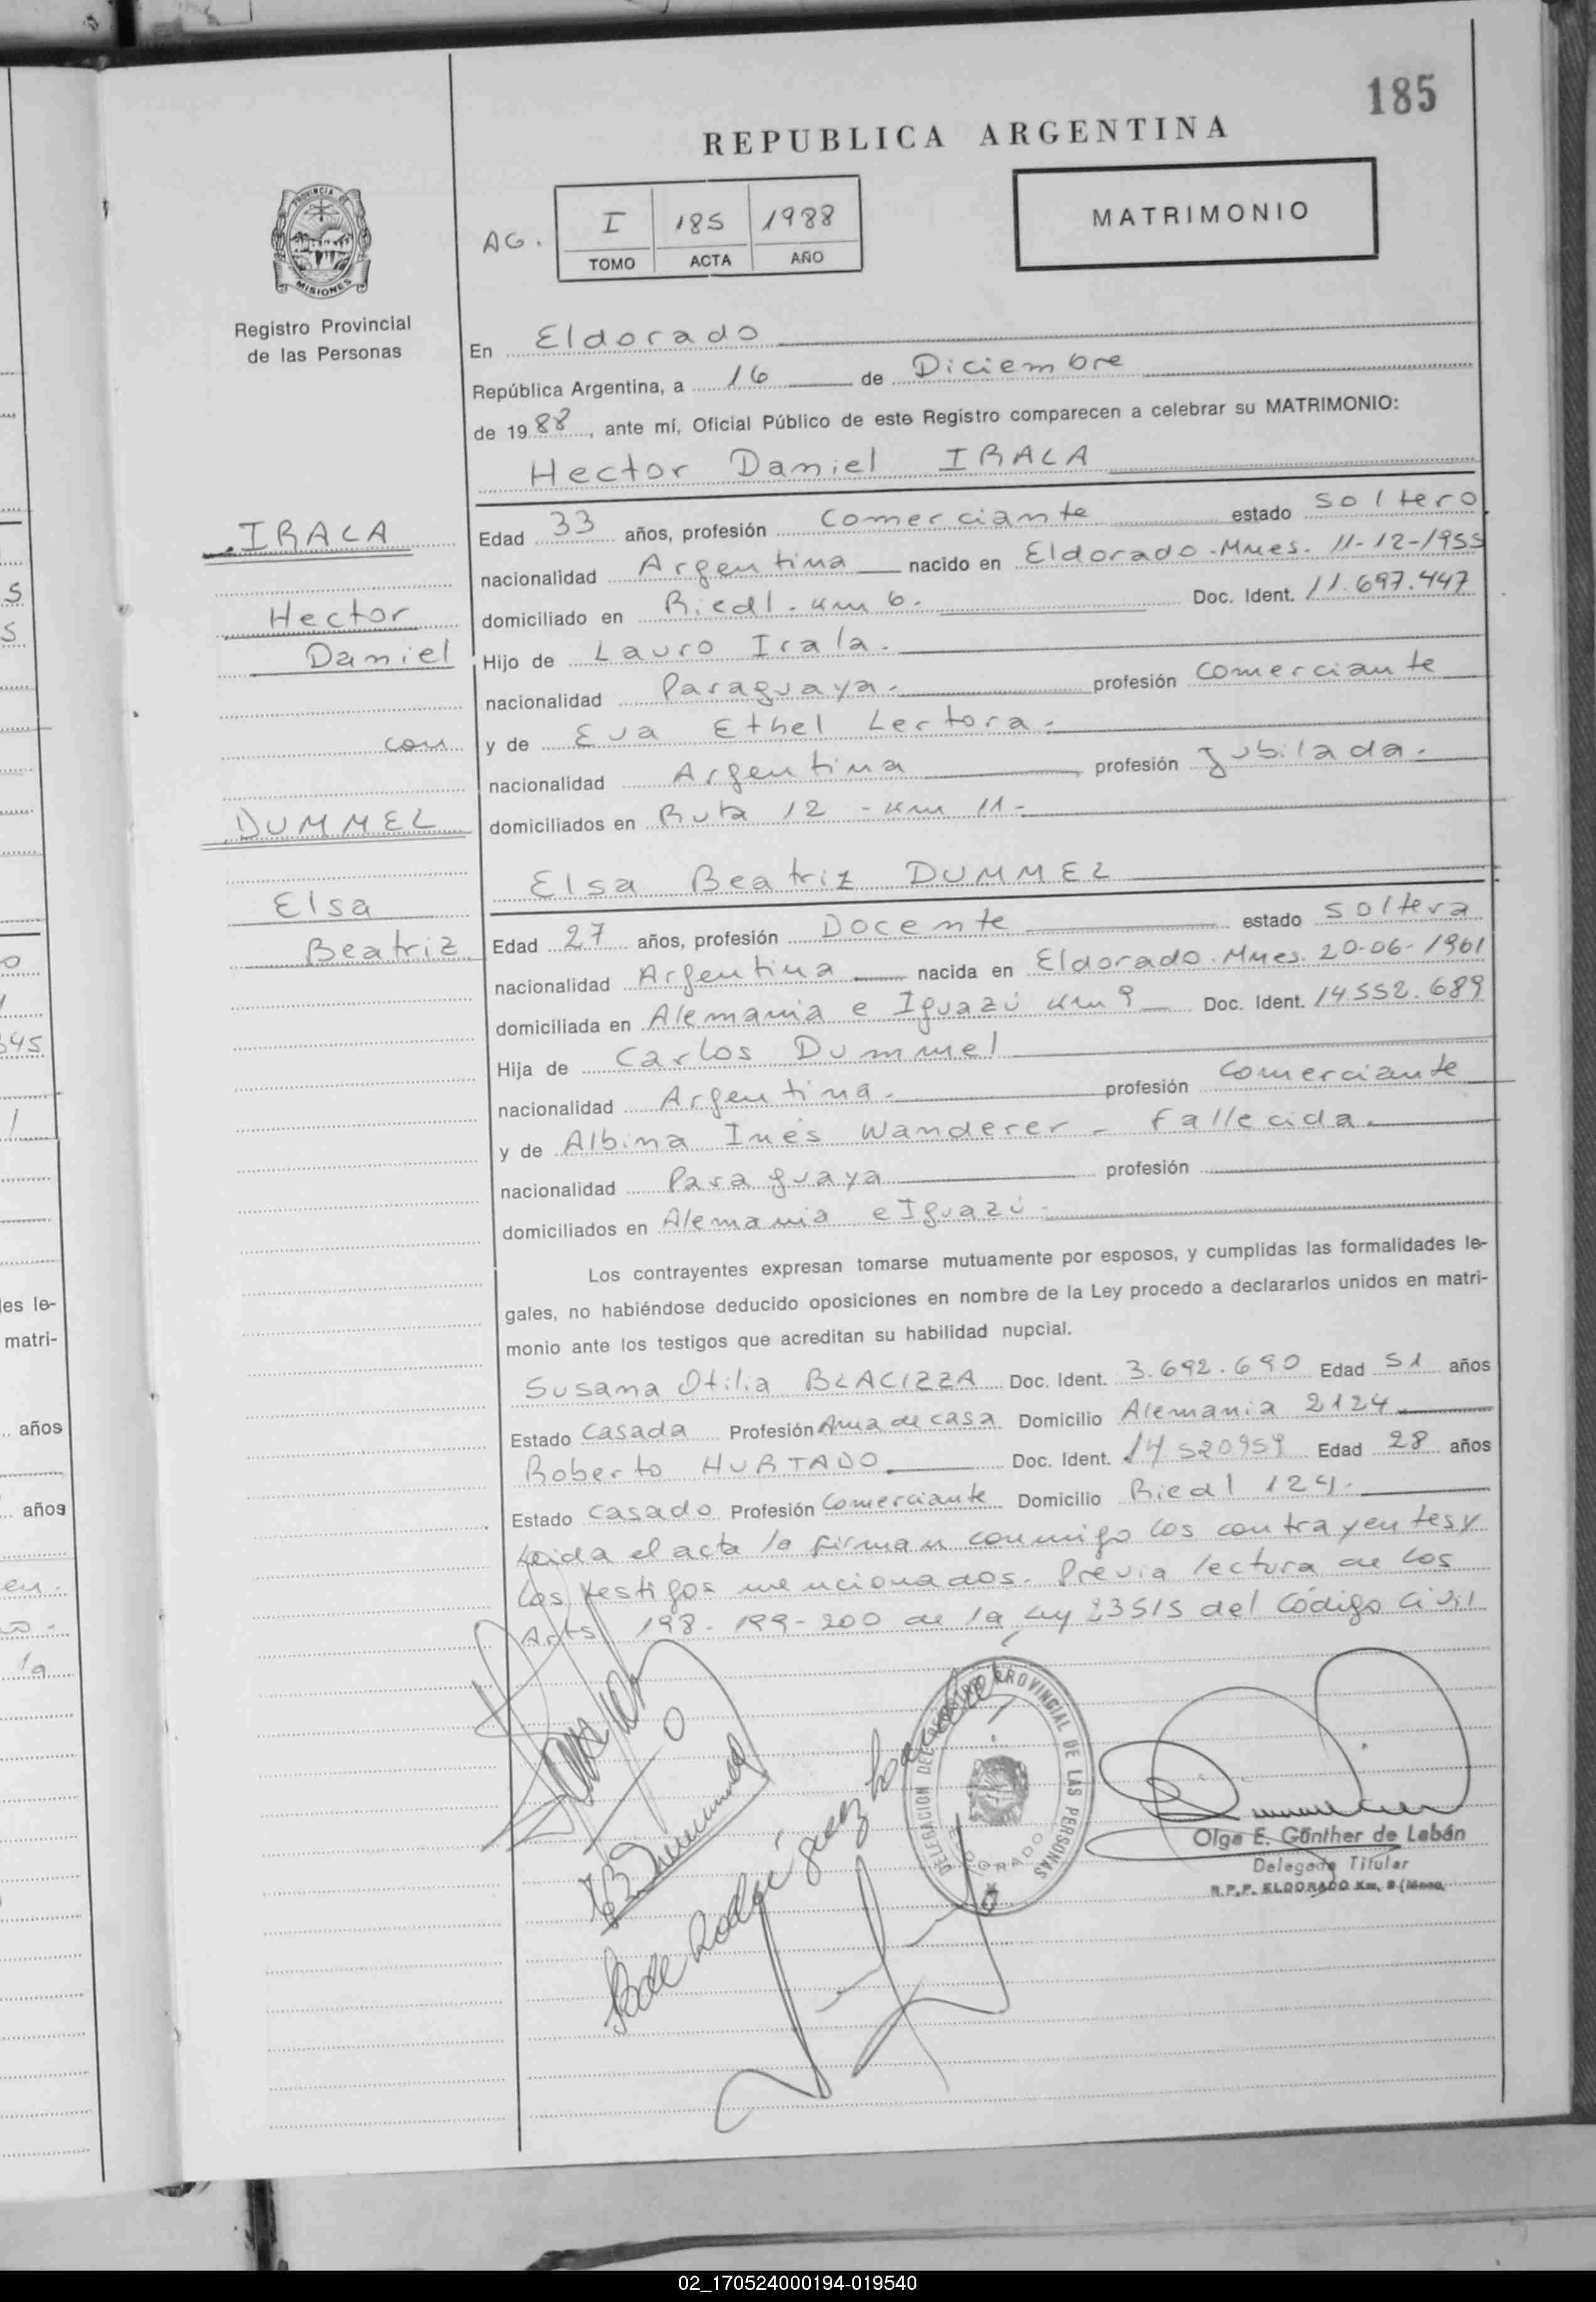 185
REPUBLICA ARGENTINA
PROVINCIA DE
MISIONES
Registro Provincial
de las Personas
AG. I 185 1988
TOMO ACTA AÑO
MATRIMONIO
En Eldorado
República Argentina, a 16 de Diciembre
de 1988, ante mí, Oficial Público de este Registro comparecen a celebrar su MATRIMONIO:
Hector Daniel IRALA
IRALA
Hector
Daniel
con
DUMMEL
Elsa
Beatriz
Edad 33 años, profesión Comerciante estado Soltero
nacionalidad Argentina nacido en Eldorado-Mnes. 11-12-1955
domiciliado en Riedl. Km 6. Doc. Ident. 11.697.447
Hijo de Lauro Irala.
nacionalidad Paraguaya. profesión Comerciante
y de Eva Ethel Lertora.
nacionalidad Argentina profesión Jubilada.
domiciliados en Ruta 12 - Km 11-
Elsa Beatriz DUMMEL
Edad 27 años, profesión Docente estado Soltera
nacionalidad Argentina nacida en Eldorado. Mnes. 20-06-1961
domiciliada en Alemania e Iguazú Km 9 Doc. Ident. 14.552.689
Hija de Carlos Dummel
nacionalidad Argentina. profesión Comerciante
y de Albina Inés Wanderer - Fallecida.
nacionalidad Paraguaya profesión
domiciliados en Alemania e Iguazú.
Los contrayentes expresan tomarse mutuamente por esposos, y cumplidas las formalidades le-
gales, no habiéndose deducido oposiciones en nombre de la Ley procedo a declararlos unidos en matri-
monio ante los testigos que acreditan su habilidad nupcial.
Susana Otilia BLACIZZA Doc. Ident. 3.692.690 Edad 51 años
Estado Casada Profesión Ama de casa Domicilio Alemania 2124
Roberto HURTADO Doc. Ident. 14520959 Edad 28 años
Estado Casado Profesión Comerciante Domicilio Riedl 124.
Leida el acta la firman conmigo los contrayentes y
los testigos mencionados. Previa lectura de los
Arts. 198-199-200 de la Ley 23515 del Código Civil
DELEGACION DEL REGISTRO PROVINCIAL DE LAS PERSONAS
ELDORADO
Olga E. Günther de Labán
Delegada Titular
R.P.P. ELDORADO Km. 9 (Mnes)
02_170524000194-019540